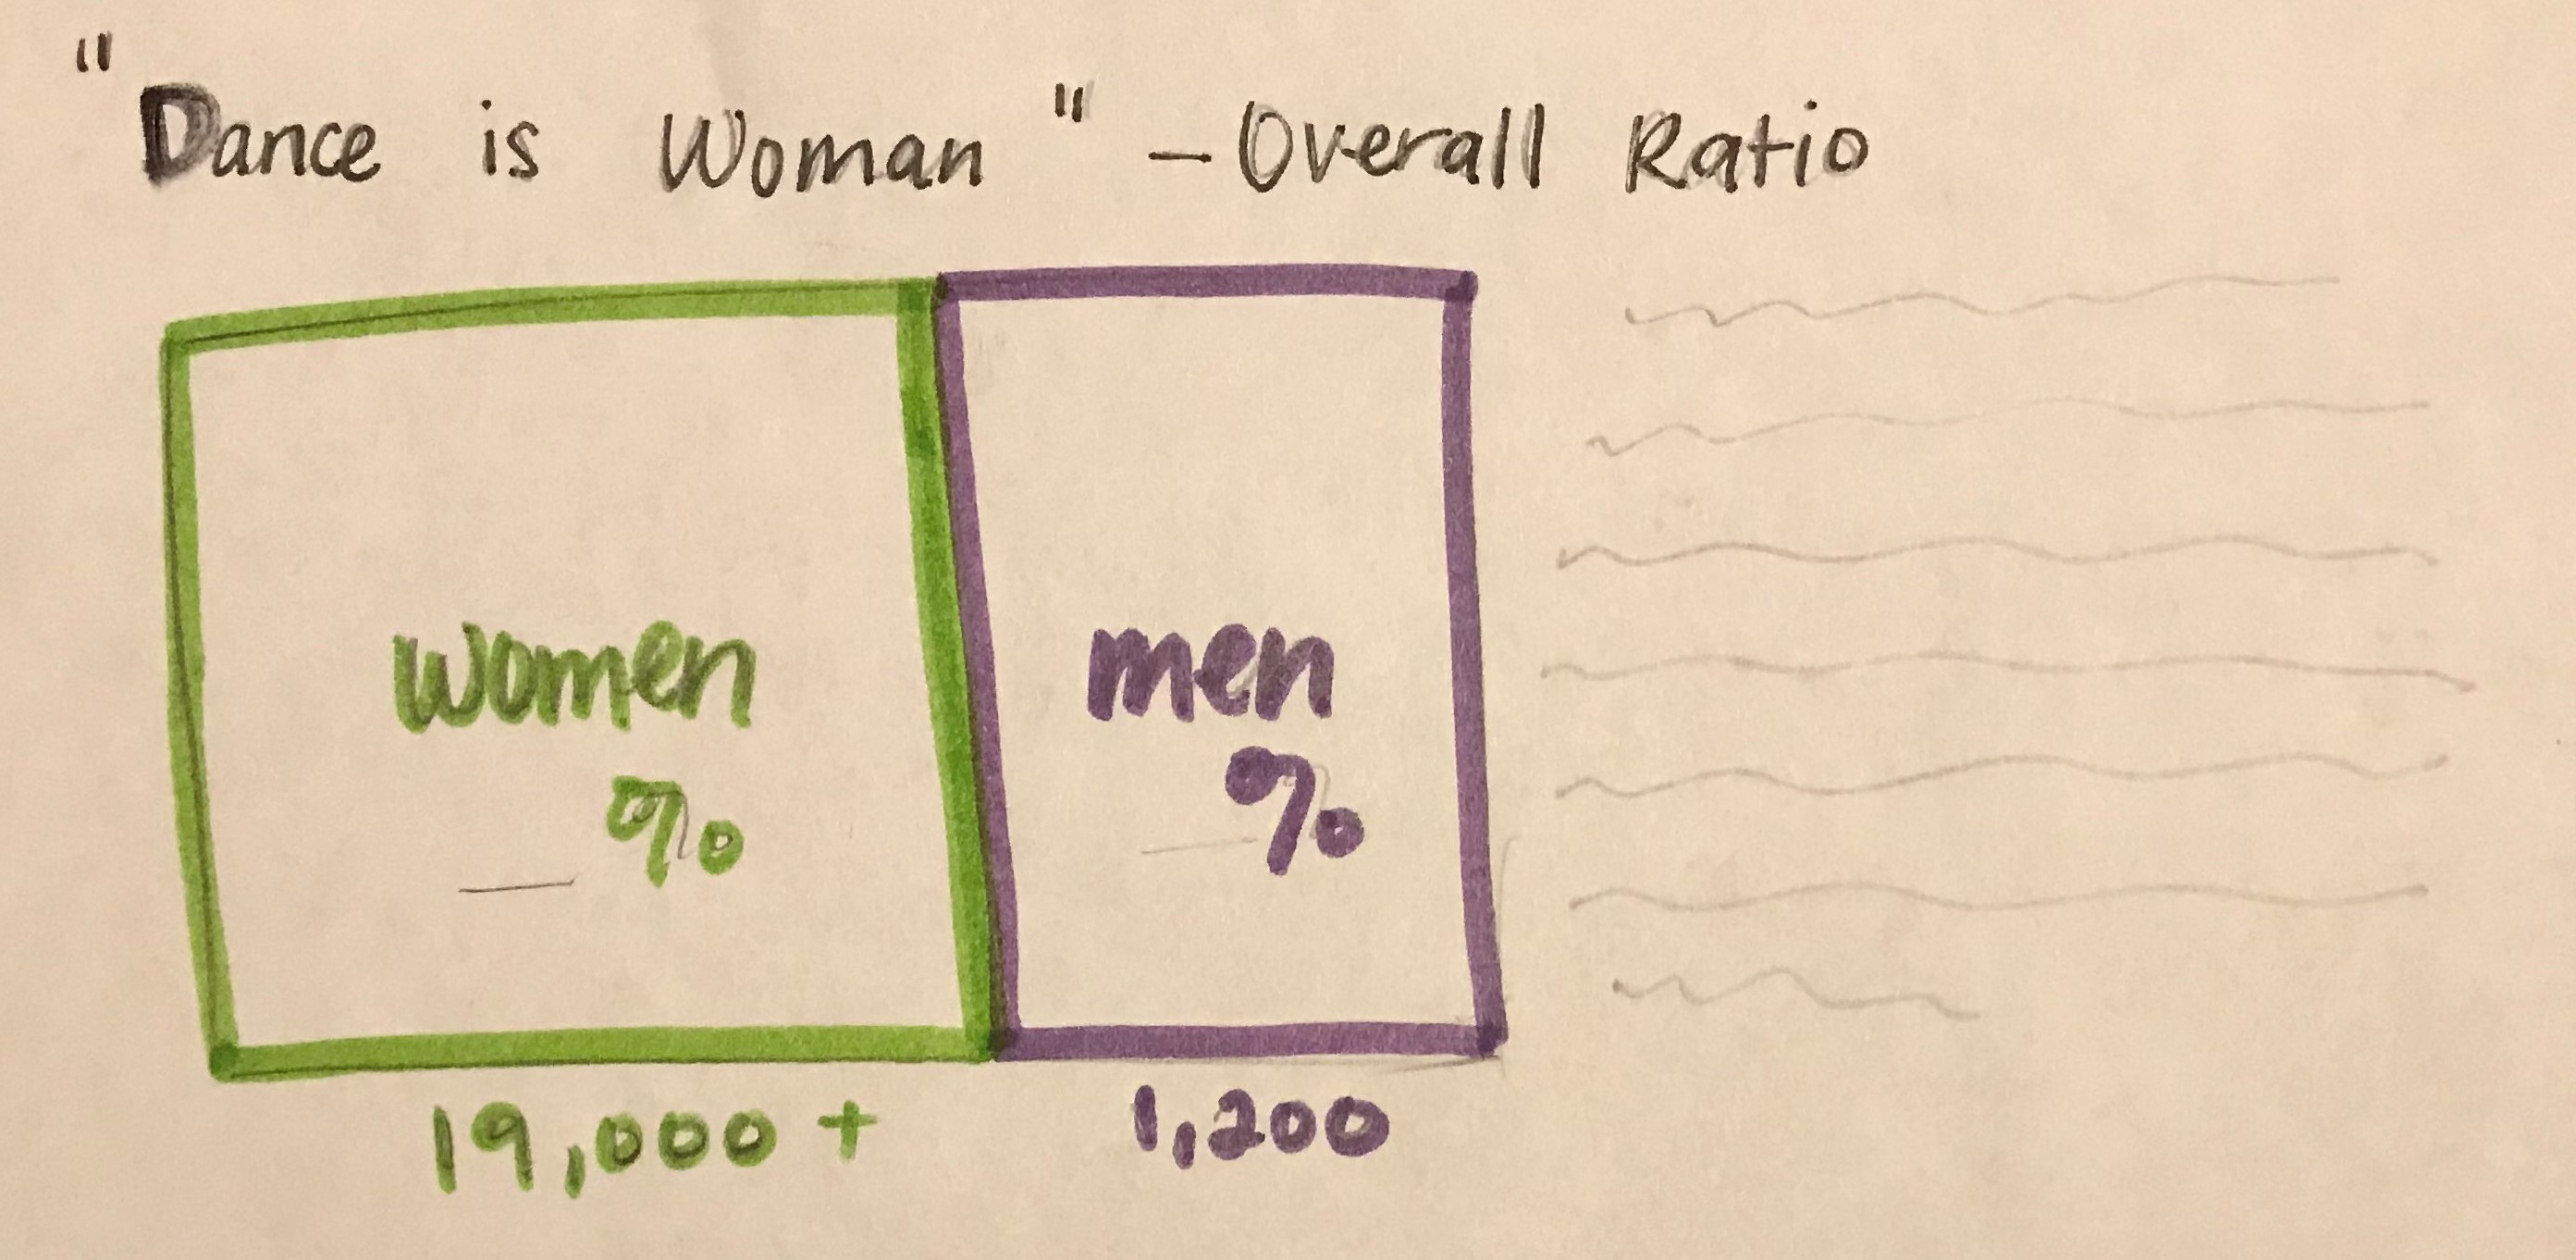 "Dance is Woman" — Overall Ratio
women
_ %
men
_ %
19,000 +
1,200